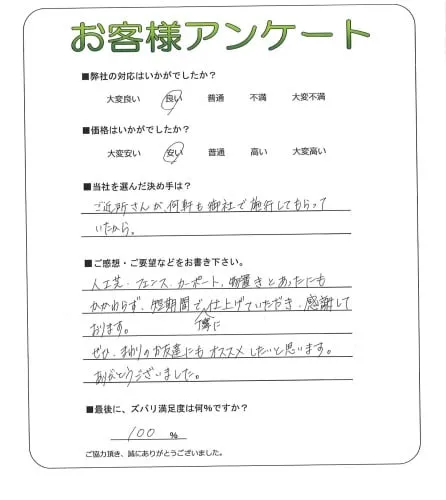 お客様アンケート
■弊社の対応はいかがでしたか？
大変良い 良い 普通 不満 大変不満
■価格はいかがでしたか？
大変安い 安い 普通 高い 大変高い
■当社を選んだ決め手は？
ご近所さんが、何軒も御社で施行してもらって
いたから。
■ご感想・ご要望などをお書き下さい。
人工芝・フェンス・カーポート、物置きとあったにも
かかわらず、短期間で仕上げていただき、感謝して
おります。
に
ぜひ、まわりのお友達にもオススメしたいと思います。
ありがとうございました。
■最後に、ズバリ満足度は何%ですか？
100 %
ご協力頂き、誠にありがとうございました。